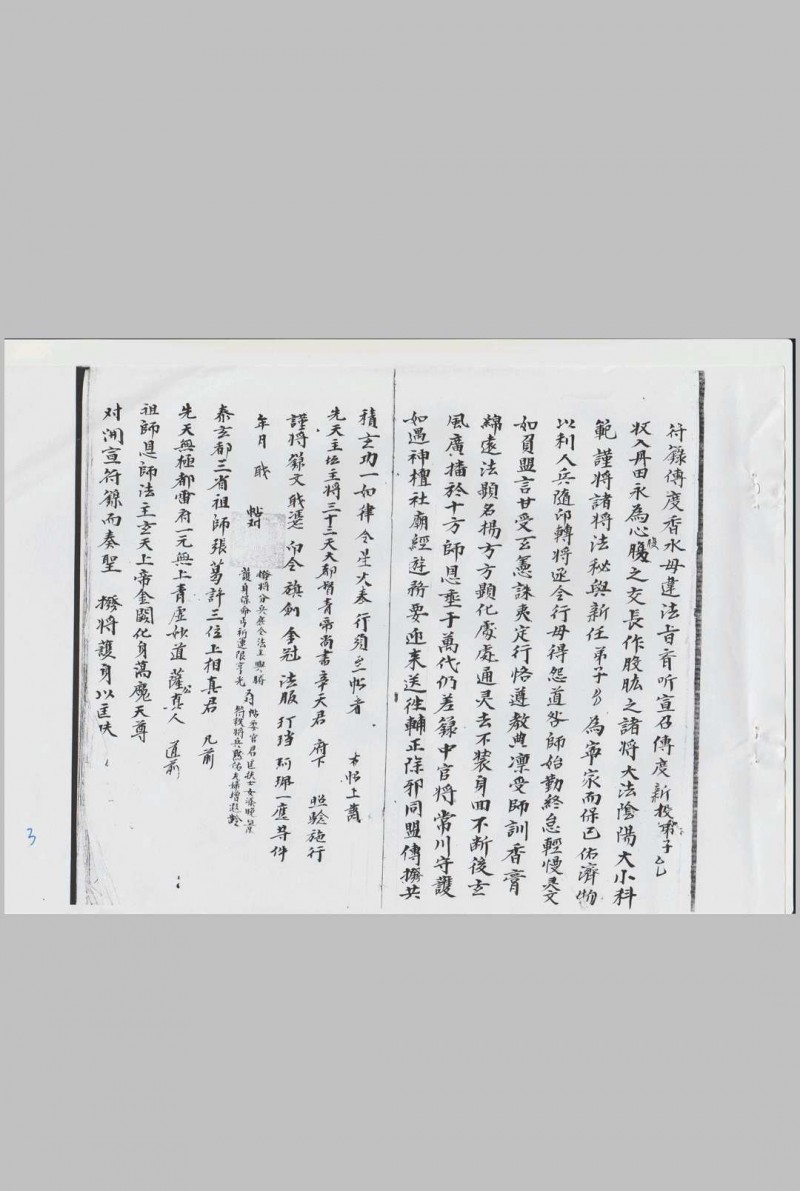 符籙傳度香水毋違法旨育听宣召傳度新授弟子厶厶
收入丹田永為心腹之交長作股肱之諸將大法陰陽大小科
範謹將諸將法秘與新任弟子 為寧家而保已佑濟物
以利人兵隨印轉將丞令行毋得怨道咎師始勤終怠輕慢灵文
如負盟言甘受玄憲誅夷定行恪遵教典凜受師訓香膏
綿遠法顯名揚方方顯化處處通灵去不裝身田不断後玄
風廣播於十方師恩垂于萬代仍差錄中官將常川守護
如遇神壇社廟經遊務要迎來送徃輔正除邪同盟傳撥共
積玄功一如律令星火奉行須至帖者 右帖上賫
先天主坛主將三十三天天都督青帝尚書辛天君 府下 照驗施行
謹將籙文職憑印令旗劍 金冠 法服 玎珰珂珮一應等件
年月 職 帖封
給將分兵 令法王
護身保命 祈運限亨 帖 官君
泰玄都三省祖師張葛許三位上相真君 几前
先天無極都雷府一元無上青虛妙道薩真人 道前
祖師恩師法主玄天上帝金闕化身蕩魔天尊
对 宣符籙而奏聖 撥將護身以匡扶
3